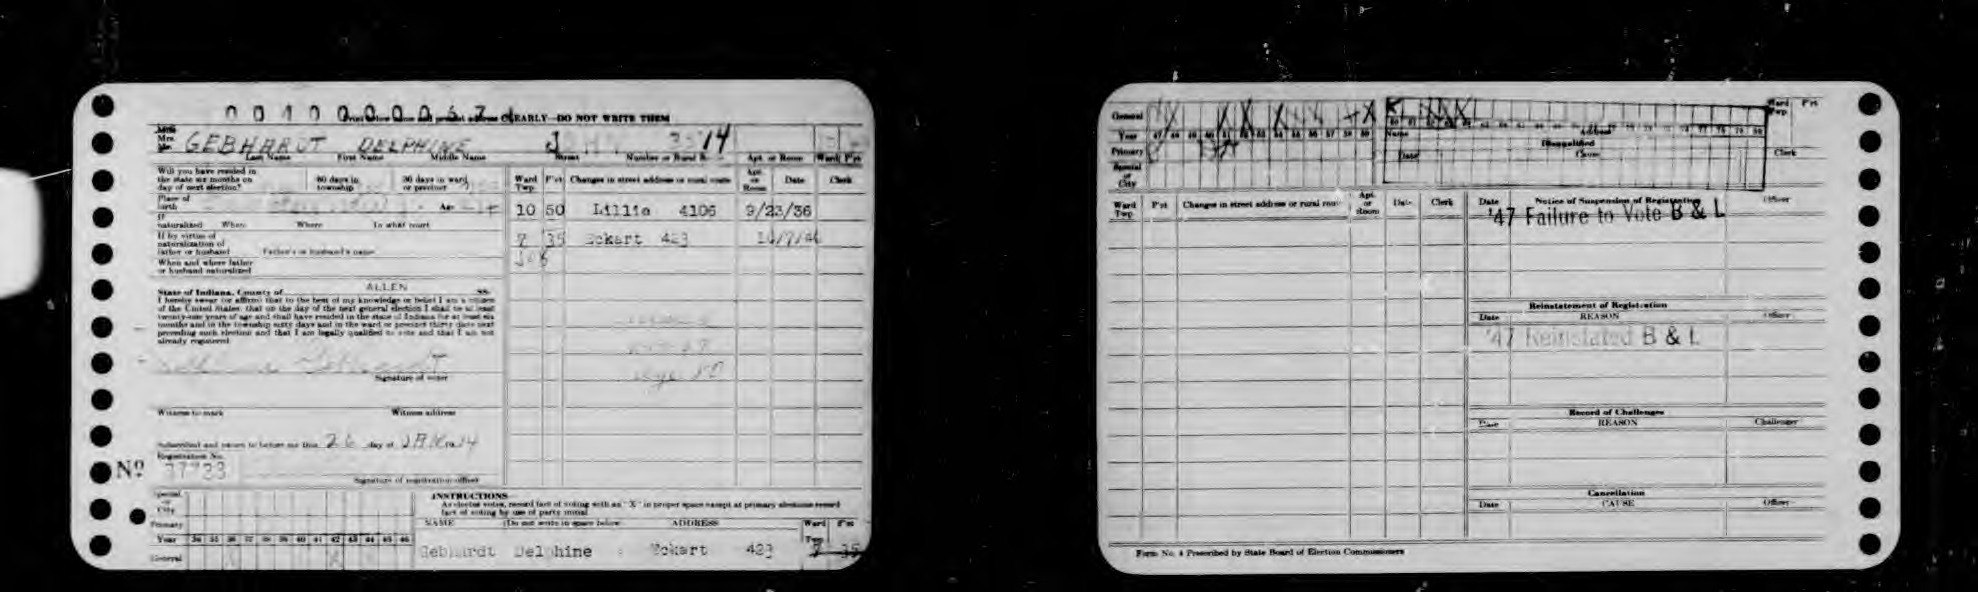 CLEARLY—DO NOT WRITE THEM
Mrs.
GEBHARDT DELPHINE J 3514
Last Name First Name Middle Name Street Number or Rural R. Apt. or Room Ward P'ct
Will you have resided in
the state six months on
day of next election?
60 days in
township
30 days in ward
or precinct
Ward
Twp
P'ct
Changes in street address or rural route
Apt.
or
Room
Date
Clerk
Place of
birth
Age
10 50 Lillie 4106 9/23/36
If
naturalized When Where In what court
7 35 Eckart 423
If by virtue of
naturalization of
father or husband Father's or husband's name
When and where father
or husband naturalized
State of Indiana, County of ALLEN SS.
I hereby swear (or affirm) that to the best of my knowledge or belief I am a citizen
of the United States; that on the day of the next general election I shall be at least
twenty-one years of age and shall have resided in the state of Indiana for at least six
months and in the township sixty days and in the ward or precinct thirty days next
preceding such election and that I am legally qualified to vote and that I am not
already registered
Signature of voter
Witness to mark Witness address
Subscribed and sworn to before me this 26 day of
Registration No.
Nº 37733
Signature of registration officer
Special
or
City
Primary
Year 34 35 36 37 38 39 40 41 42 43 44 45 46
General
INSTRUCTIONS
As elector votes, record fact of voting with an "X" in proper space except at primary elections record
fact of voting by use of party initial
NAME (Do not write in space below) ADDRESS Ward Twp P'ct
Gebhardt Delphine Eckart 423 7 35
General
Year 47 48 49 50 51 52 53 54 55 56 57 58 59
Primary
Special
or
City
Name Address
Disqualified
Date Cause
Ward
Twp
P'ct
Clerk
Ward
Twp
P'ct
Changes in street address or rural route
Apt.
or
Room
Date
Clerk
Date Notice of Suspension of Registration Officer
'47 Failure to Vote B & L
Reinstatement of Registration
Date REASON Officer
'47 Reinstated B & L
Record of Challenges
Date REASON Challenger
Cancellation
Date CAUSE Officer
Form No. 4 Prescribed by State Board of Election Commissioners